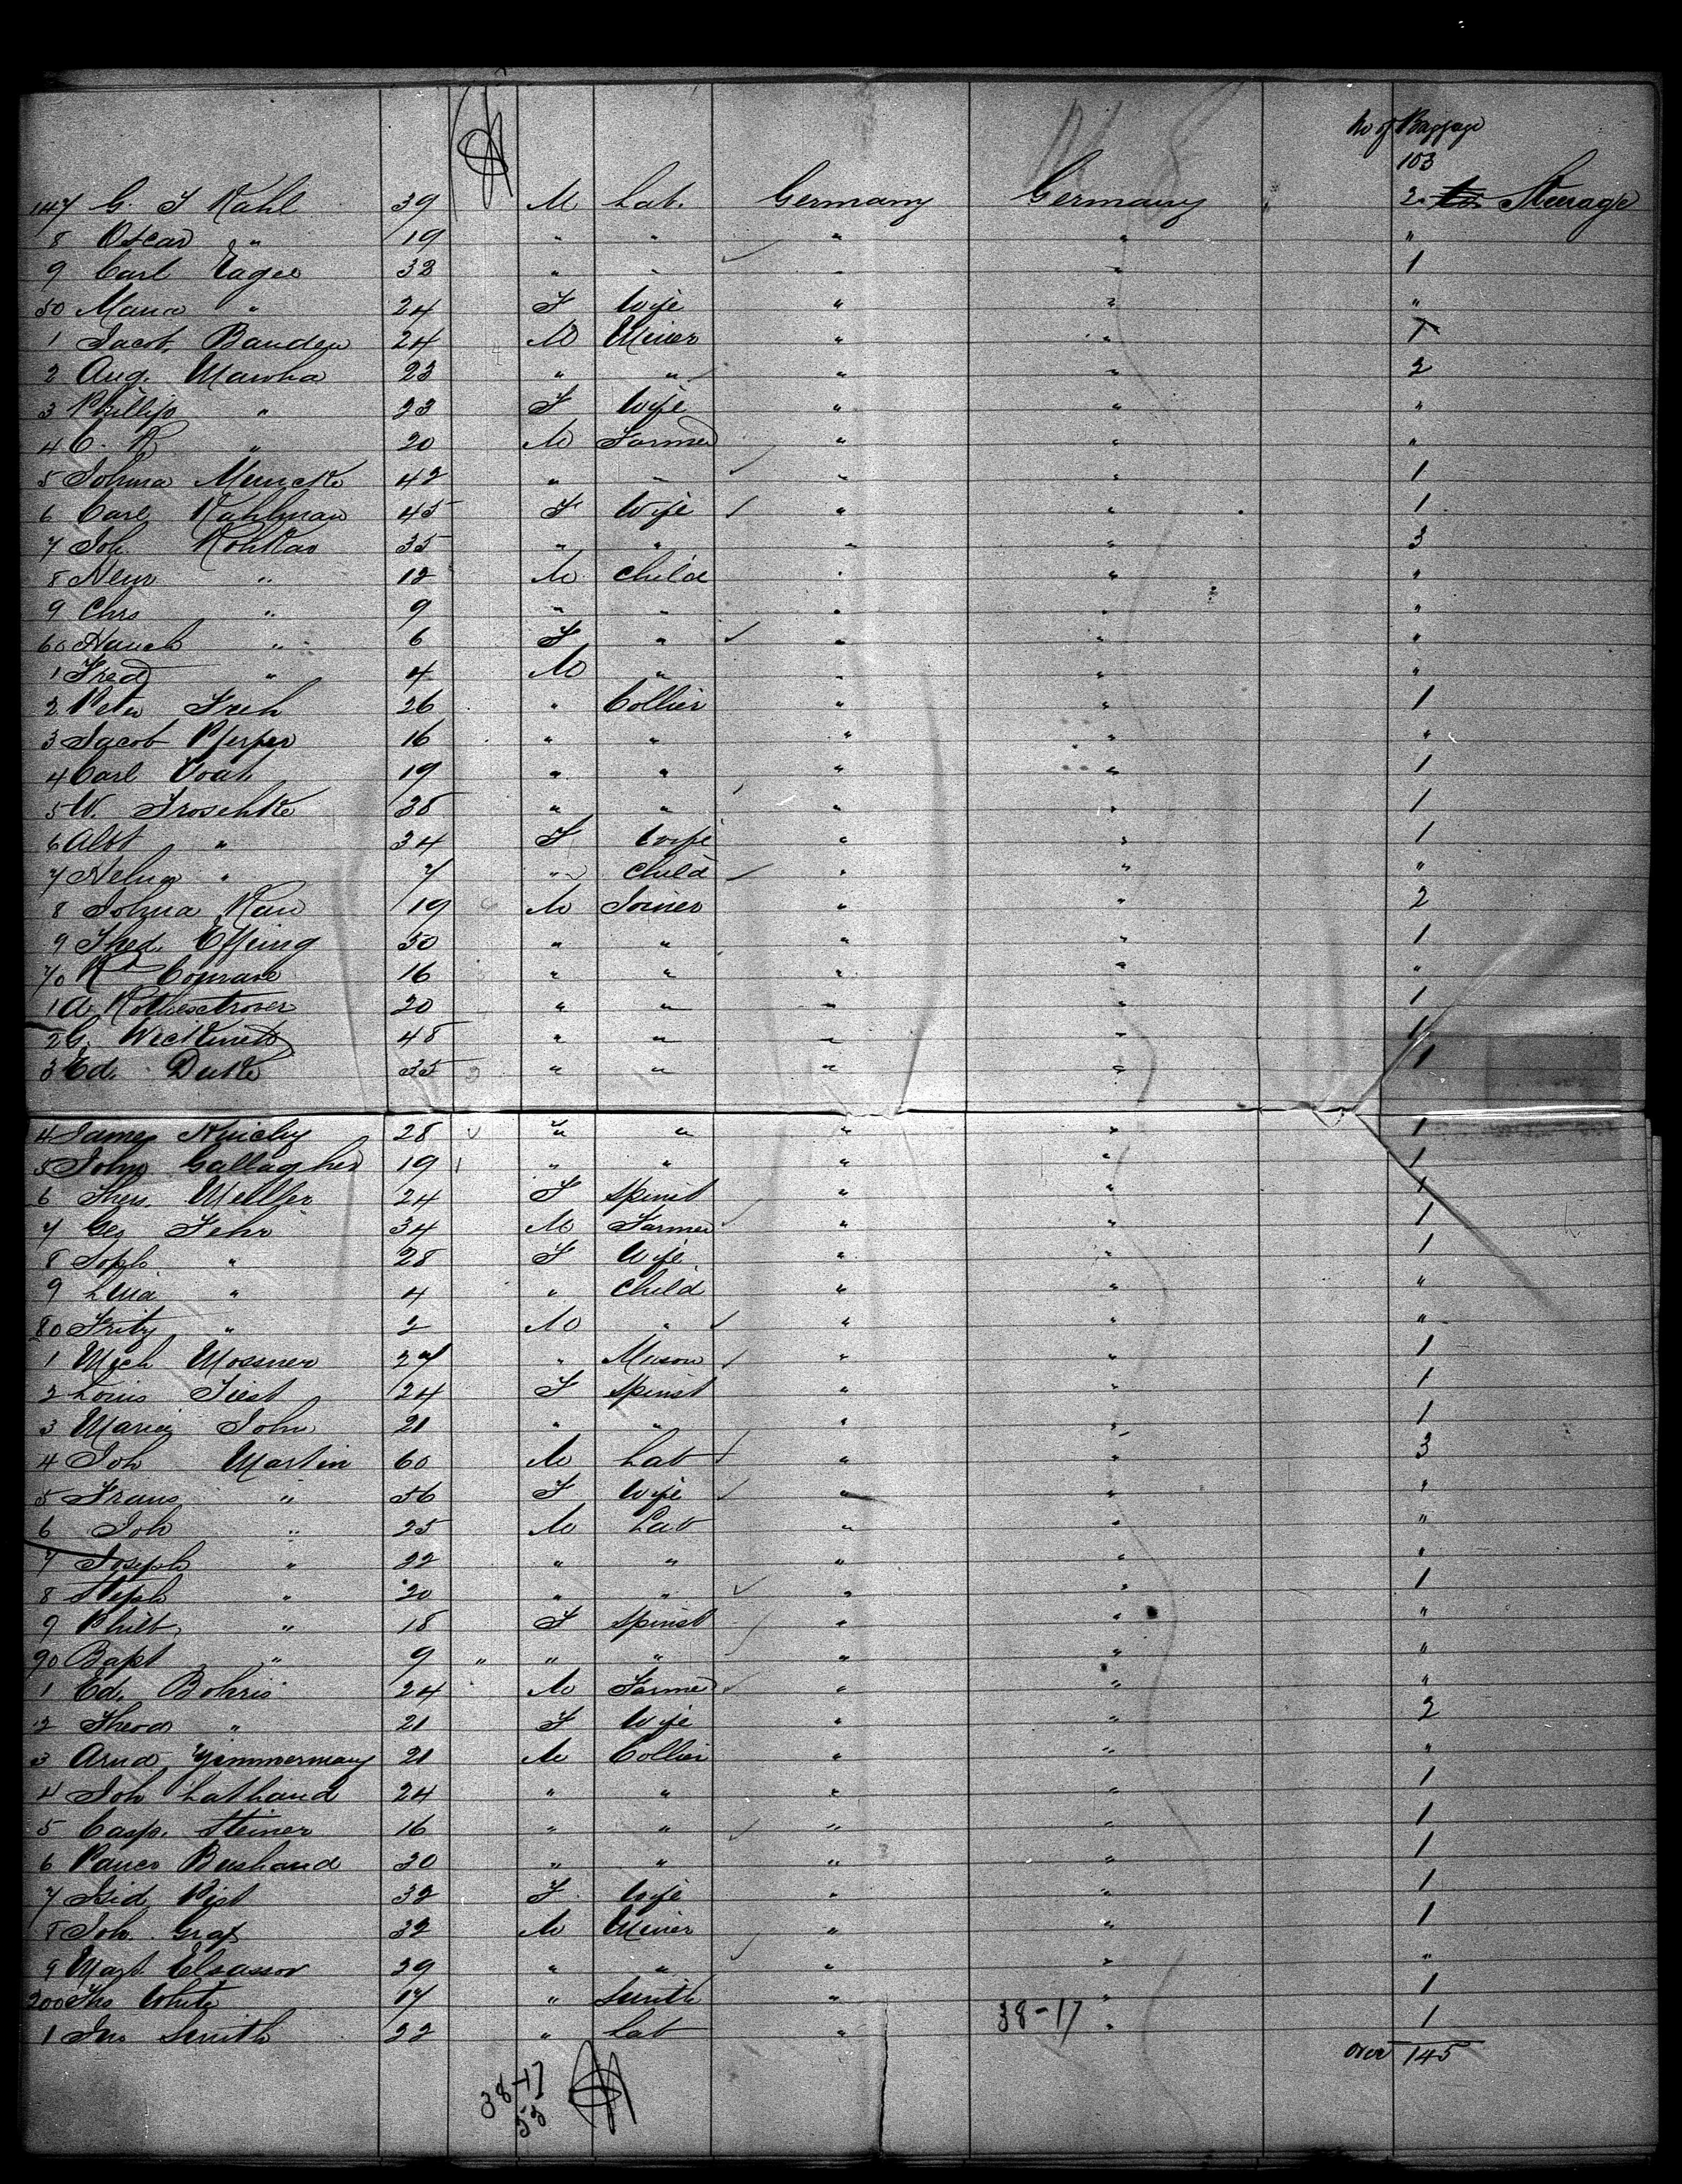 No of Baggage
103
147 G. F Kahl 39 M Lab. Germany Germany 2 Steerage
8 Oscar " 19 " " " " "
9 Carl Eager 32 " " " " 1
50 Maria " 24 F Wife " " "
1 Jacob Bauden 24 M Miner " " 1
2 Aug. Mawha 23 " " " " 2
3 Phillip " 23 F Wife " " "
4 C. R " 20 M Farmer " " "
5 Johma Muncke 42 " " " " 1
6 Carl Kuhlman 45 F Wife " " 1
7 Joh Kohkar 35 " " " " 3
8 " 12 M Child " " "
9 Chrs " 9 " " " " "
60 Hanch " 6 F " " " "
1 Fred " 4 M " " " "
2 Peter Freh 26 " Collier " " 1
3 Jacob 16 " " " " "
4 Carl 19 " " " " 1
5 W. Froschke 38 " " " " 1
6 Albt " 34 F Wife " " 1
7 " 7 " Child " " "
8 Johua Rau 19 M Joiner " " 2
9 Thed. Effing 30 " " " " 1
70 Rd Conrad 16 " " " " "
1 A. 20 " " " " 1
2 G. 48 " " " " 1
3 Ed. Dutke 35 " " " " 1
4 James 28 " " " " 1
5 John Gallagher 19 " " " " 1
6 Thes. 24 F Spinst " " 1
7 Geo Fehr 34 M Farmer " " 1
8 Soph " 28 F Wife " " 1
9 Lina " 4 " Child " " "
80 Fritz " 2 M " " " "
1 Mich Mossner 27 " Mason " " 1
2 Louis Fiest 24 F Spinst " " 1
3 Maria John 21 " " " " 1
4 Joh Martin 60 M Lab " " 3
5 Frans " 56 F Wife " " "
6 Joh " 25 M Lab " " "
7 Joseph " 22 " " " " "
8 Steph " 20 " " " " 1
9 Philb " 18 F Spinst " " "
90 Bapt " 9 " " " " " "
1 Ed. Bohris 24 M Farmer " " "
2 Theod " 21 F Wife " " 2
3 Arnd Zimmerman 21 M Collier " " "
4 Joh Lathand 24 " " " " 1
5 Casp. Steiner 16 " " " " 1
6 Bushand 30 " " " " 1
7 Isid Pist 32 F Wife " " 1
8 Joh. Graf 32 M Miner " " 1
9 Mart Elsassor 29 " " " " "
200 Tho White 17 " Smith " " 1
1 Jno Smith 22 " Lab " 38-17 " 1
over 145
38-17
53